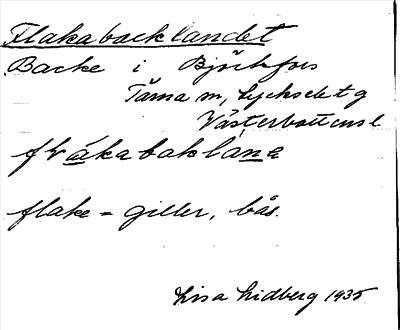 Flakabacklandet
Backe i Björkfors
Tärna sn, Lycksele tg
Västerbottens l
flakabaklane
flake = giller, bås.
Lisa Lidberg 1935